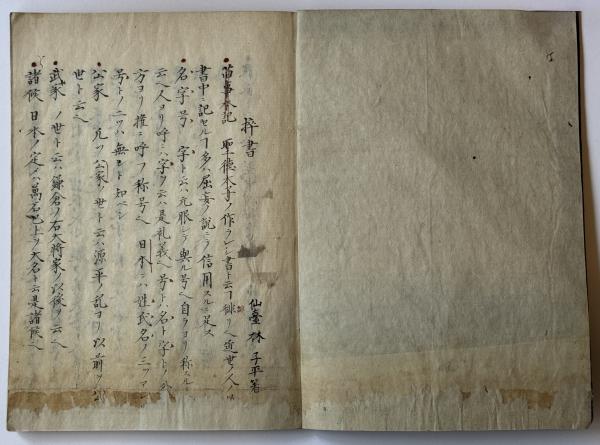 拌書
仙臺 林 子平著
旧事本記 聖徳太子ノ作ラレシ書ト云フ 非リ 近世ノ人ノ
書中ニ記セルフ多ハ屈妄ノ説ニシテ信用スルニ足ス
名字号 字ト云ハ元服シテ與ル号 自ラヨリ称スル
云 人ヨリ呼ニハ字ヲ云ハ是礼義 号ト名ト字ト
方ヨリ推ニ呼フ称号 日本ニハ姓氏名ノ三ツ
号トノ二ツハ無ト知ベシ
公家 凡ソ公家ノ世ト云ハ源平ノ乱ヨリ以前ヲ
世ト云
武家ノ世ト云ハ鎌倉ノ右大将家ノ以後ヲ云
諸候 日本ノ定メハ萬石已上ヲ大名ト云是諸候